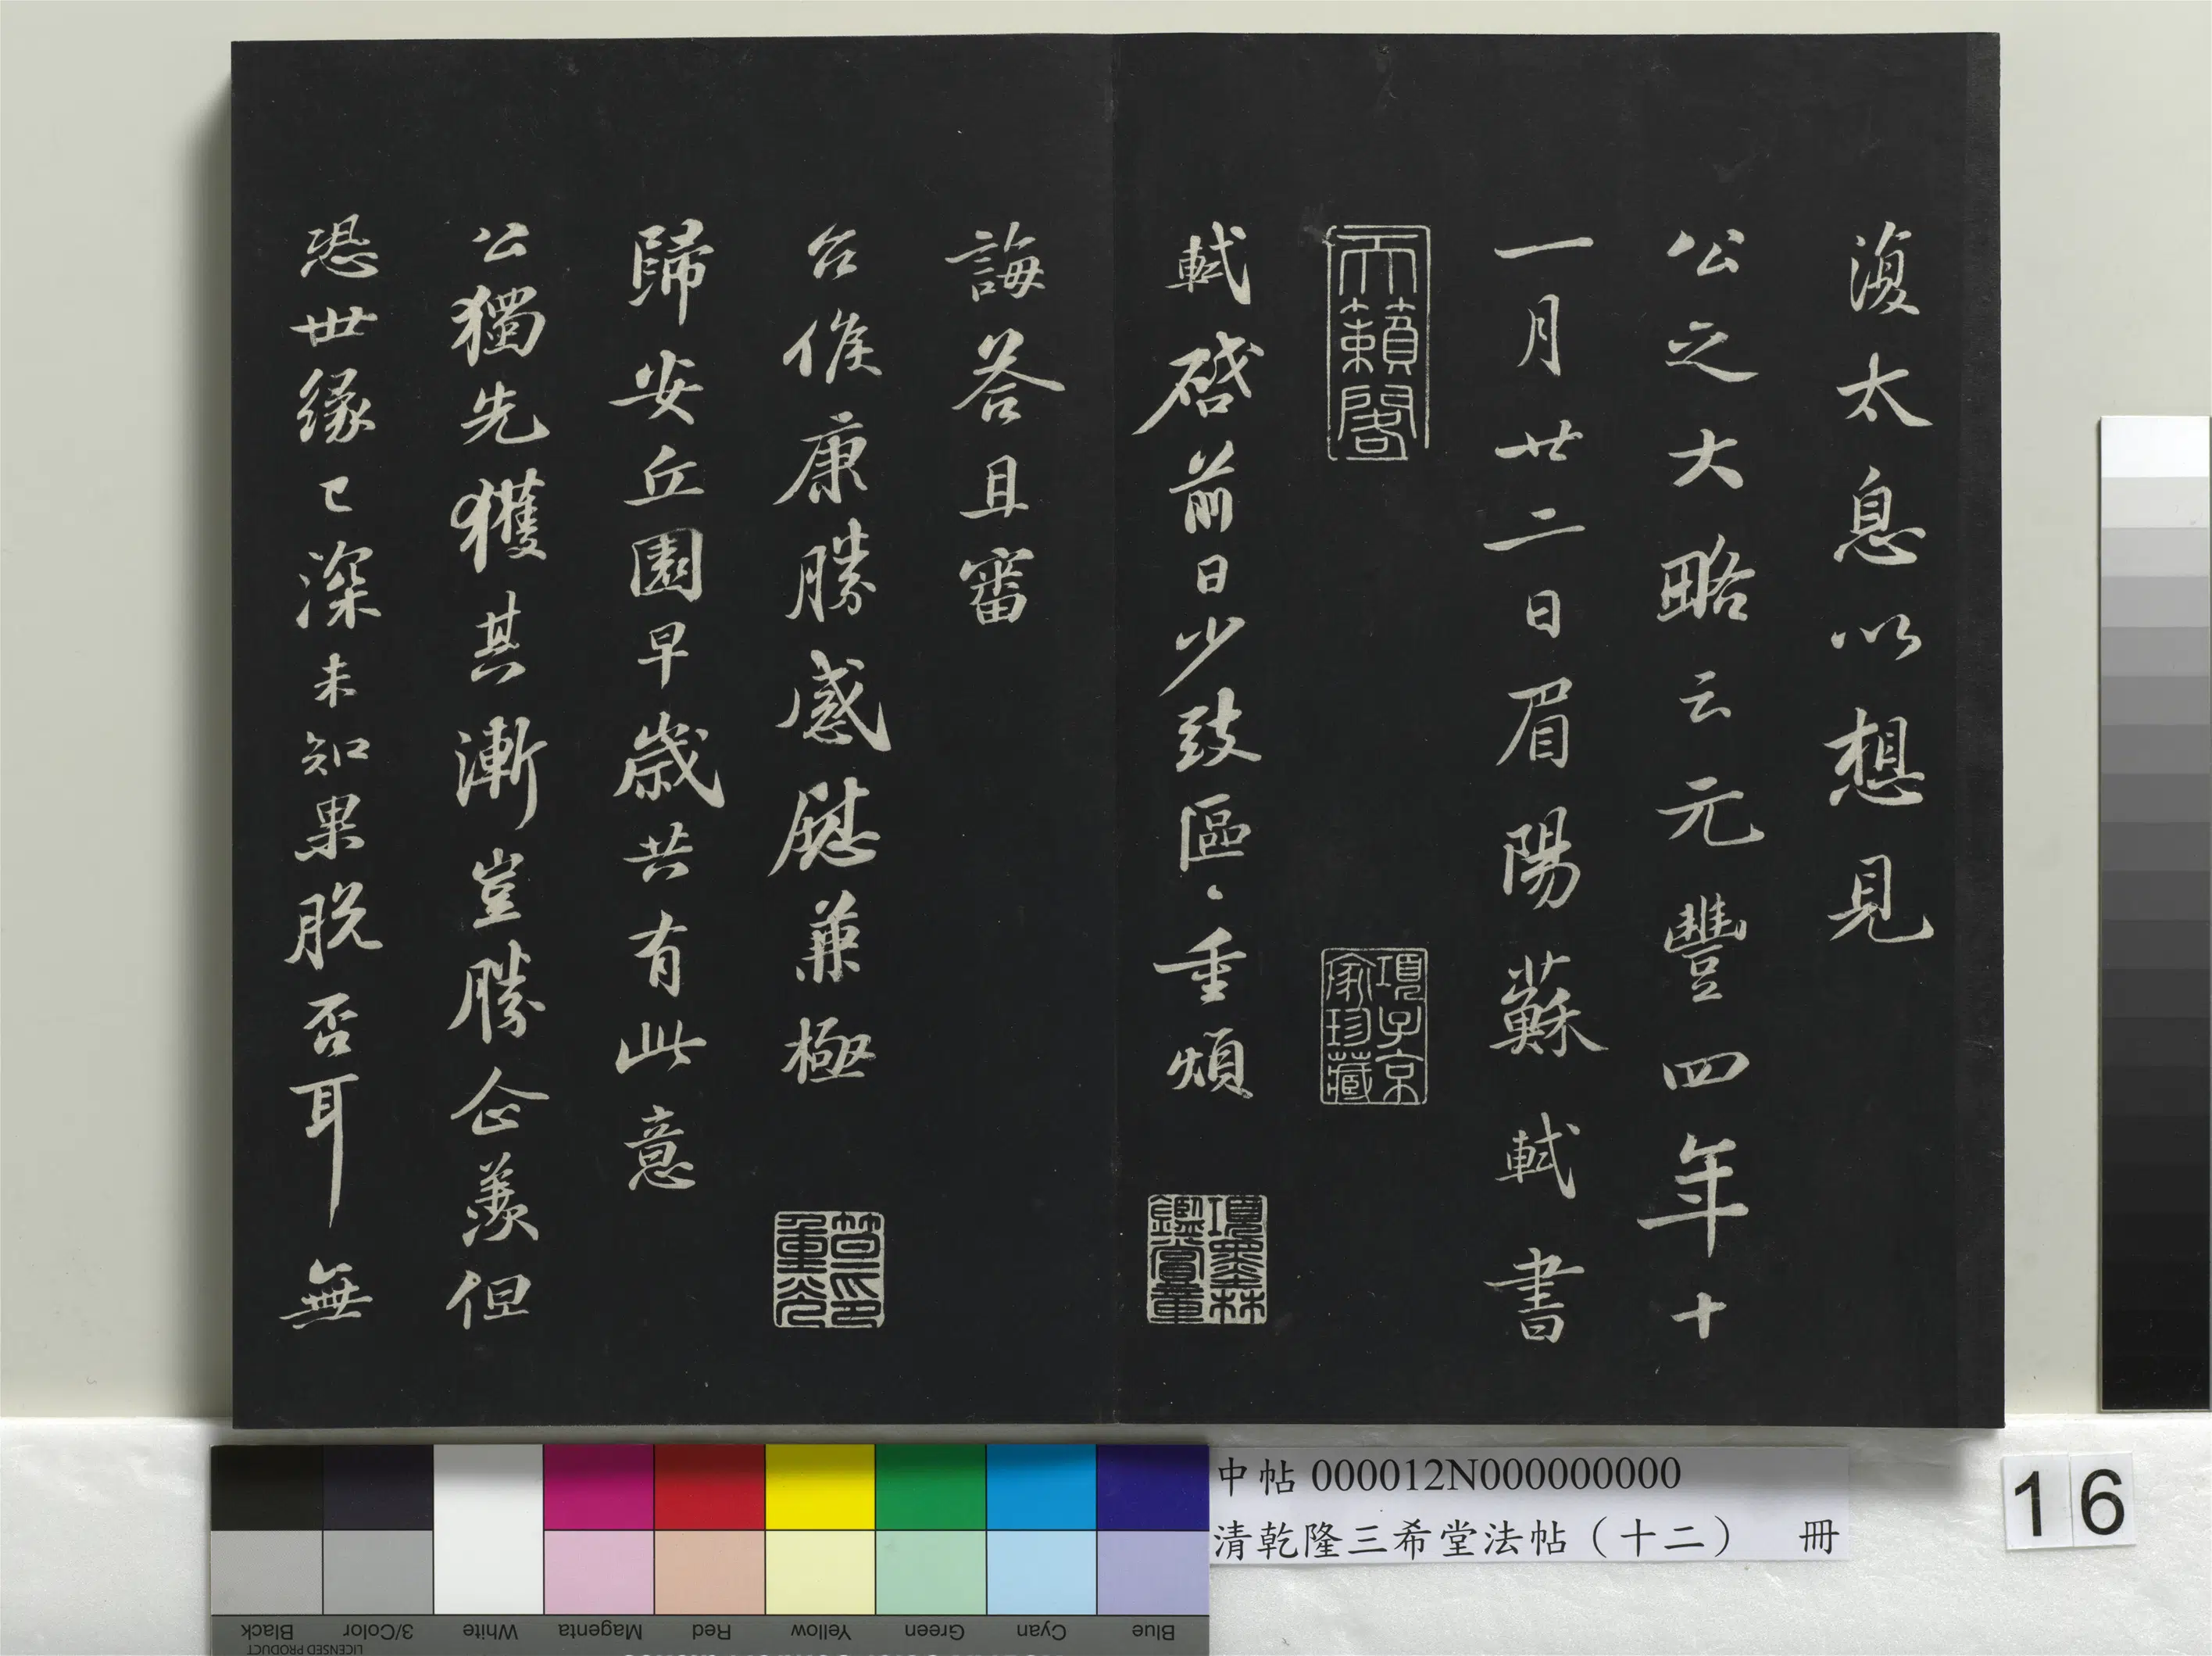 復太息以想見
公之大略云元豐四年十
一月廿二日眉陽蘇軾書
天籟閣
項子京家珍藏
軾啓前日少致區〻重煩
項墨林鑑賞章
誨答且審
台候康勝感慰兼極
笪重光印
歸安丘園早歲共有此意
公獨先獲其漸豈勝企羨但
恐世緣已深未知果脫否耳無
中帖 000012N000000000
清乾隆三希堂法帖（十二） 冊
16
Black
3/Color
White
Magenta
Red
Yellow
Green
Cyan
Blue
LICENSED PRODUCT